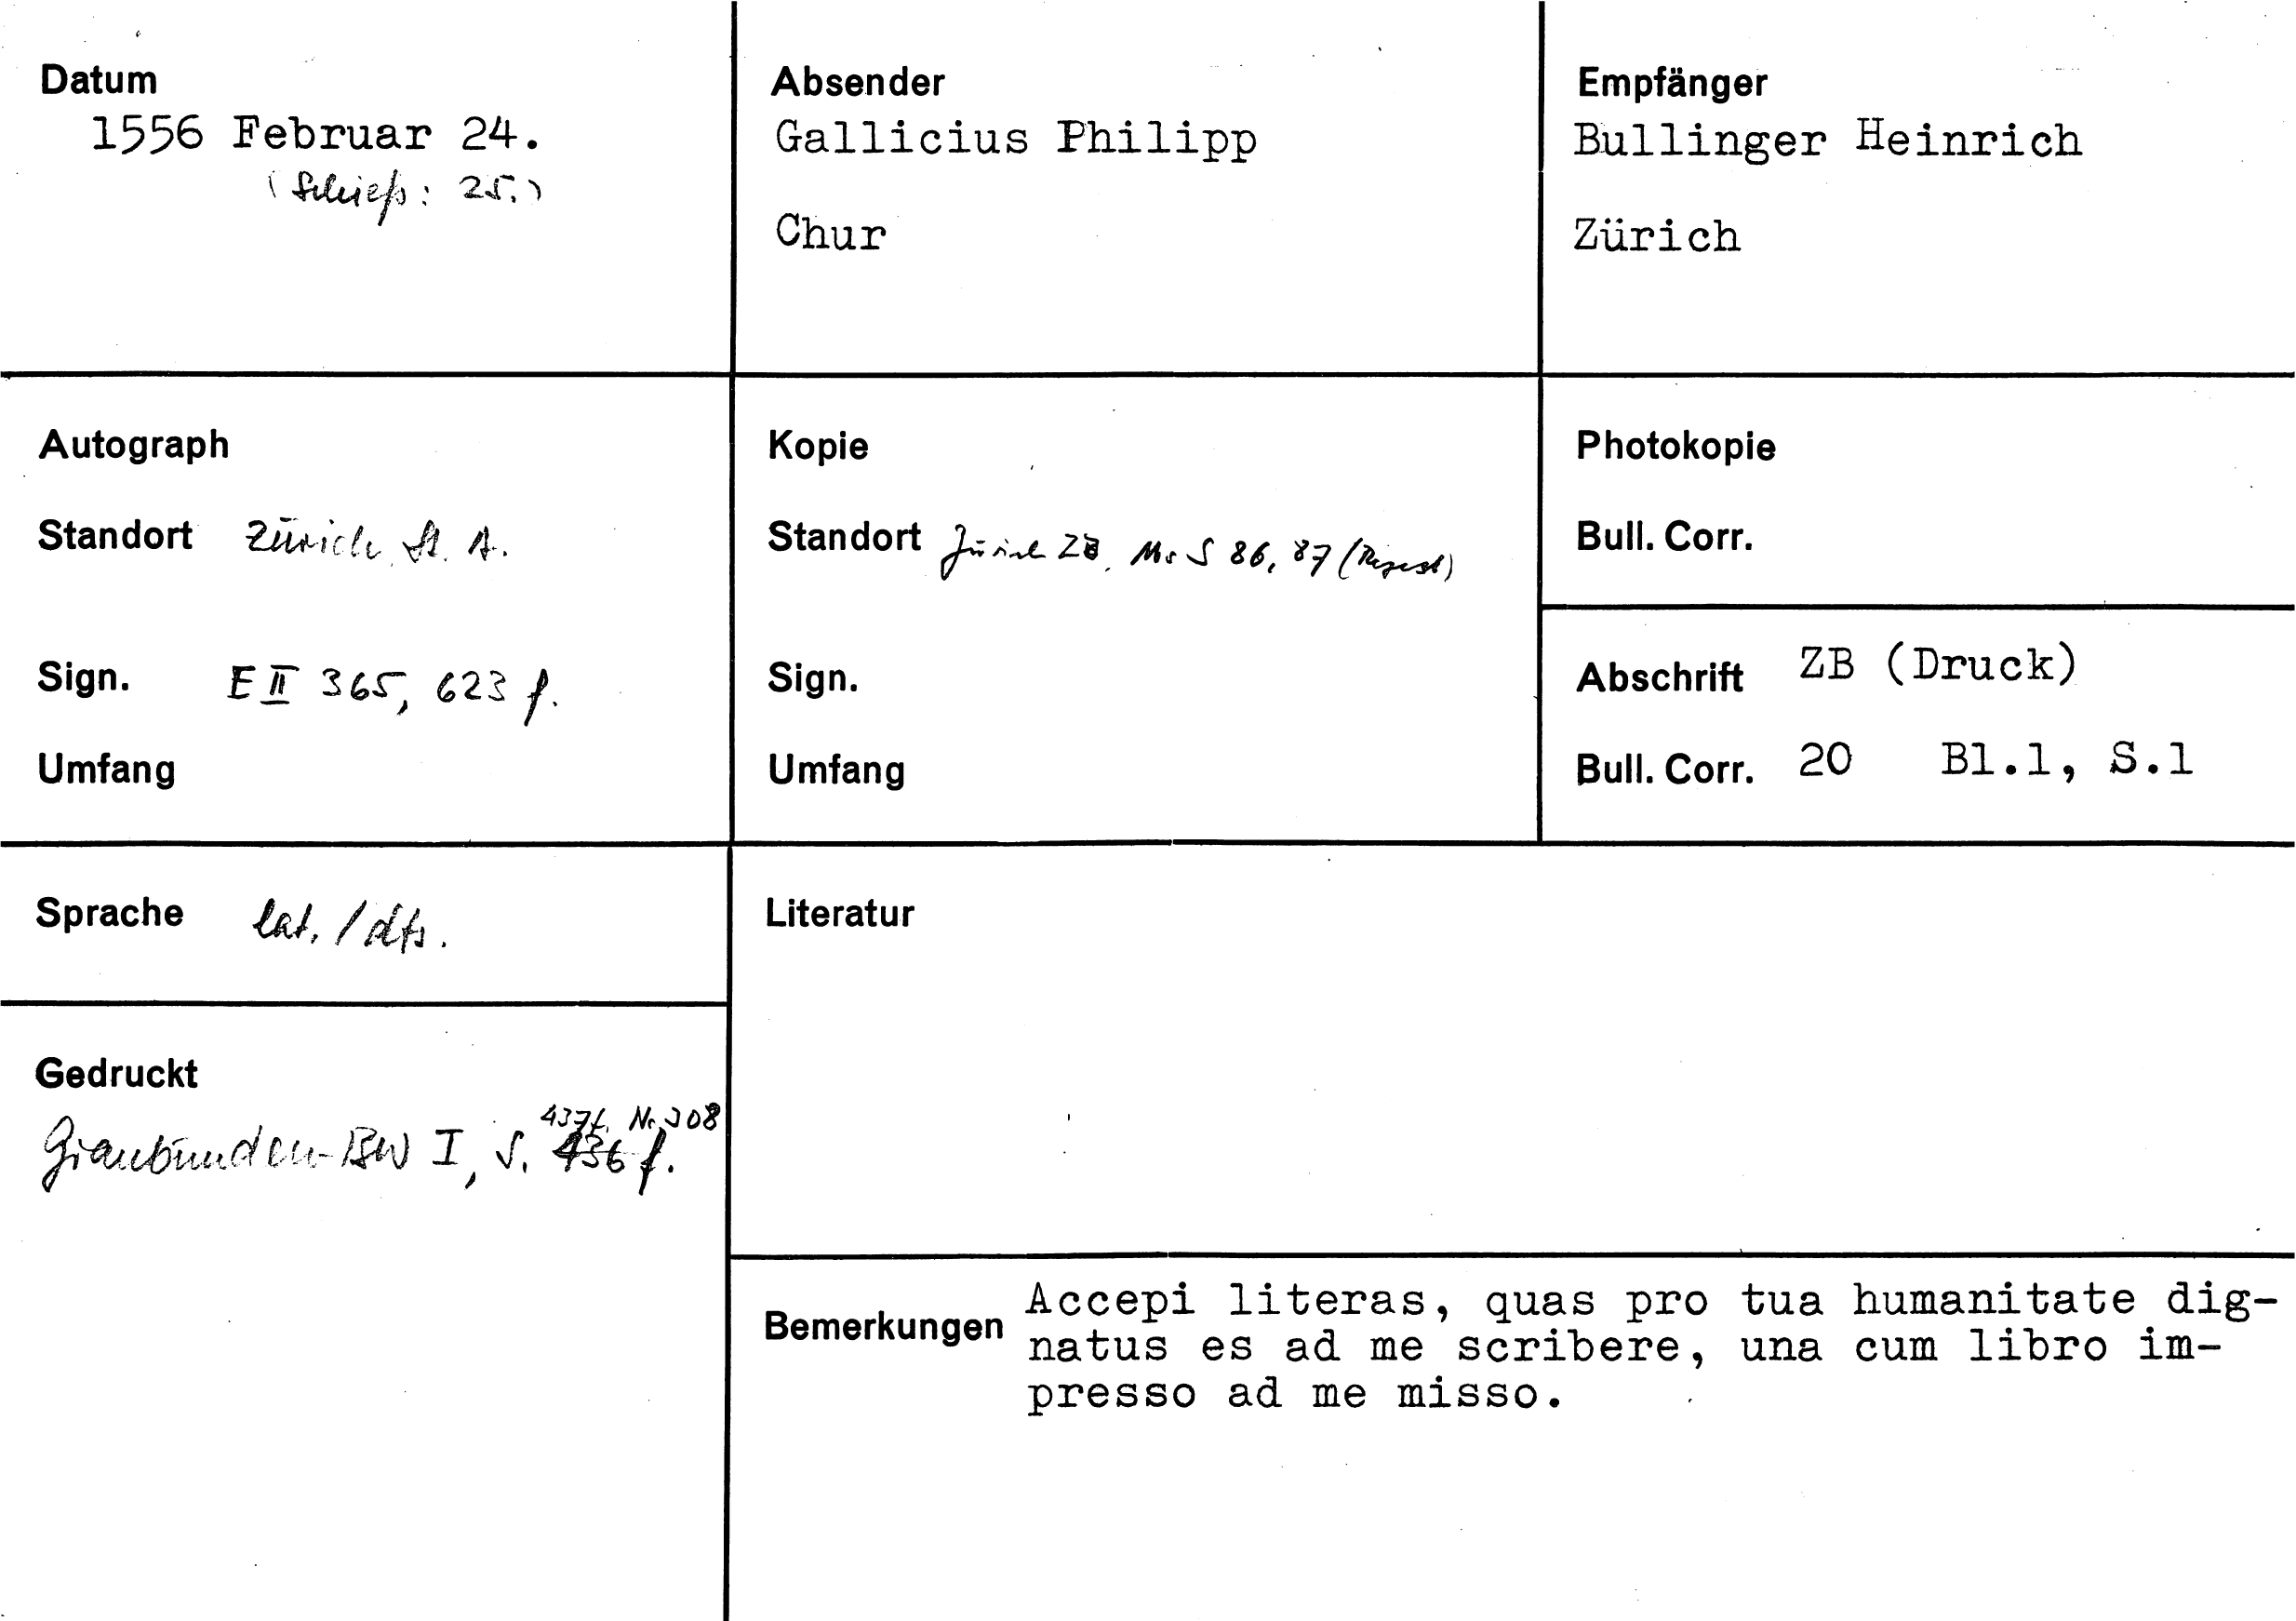 Datum
1556 Februar 24.
(Schieß: 25.)
Absender
Gallicius Philipp
Chur
Empfänger
Bullinger Heinrich
Zürich
Autograph
Standort Zürich St. A.
Sign. E II 365, 623 f.
Umfang
Kopie
Standort Zürich ZB, Ms S 86, 87 (Regest)
Sign.
Umfang
Photokopie
Bull. Corr.
Abschrift ZB (Druck)
Bull. Corr. 20 Bl.1, S.1
Sprache lat. / dts.
Literatur
Gedruckt
437f. Nr. 308
Graubünden-BW I, S. 436 f.
Bemerkungen Accepi literas, quas pro tua humanitate dig-
natus es ad me scribere, una cum libro im-
presso ad me misso.